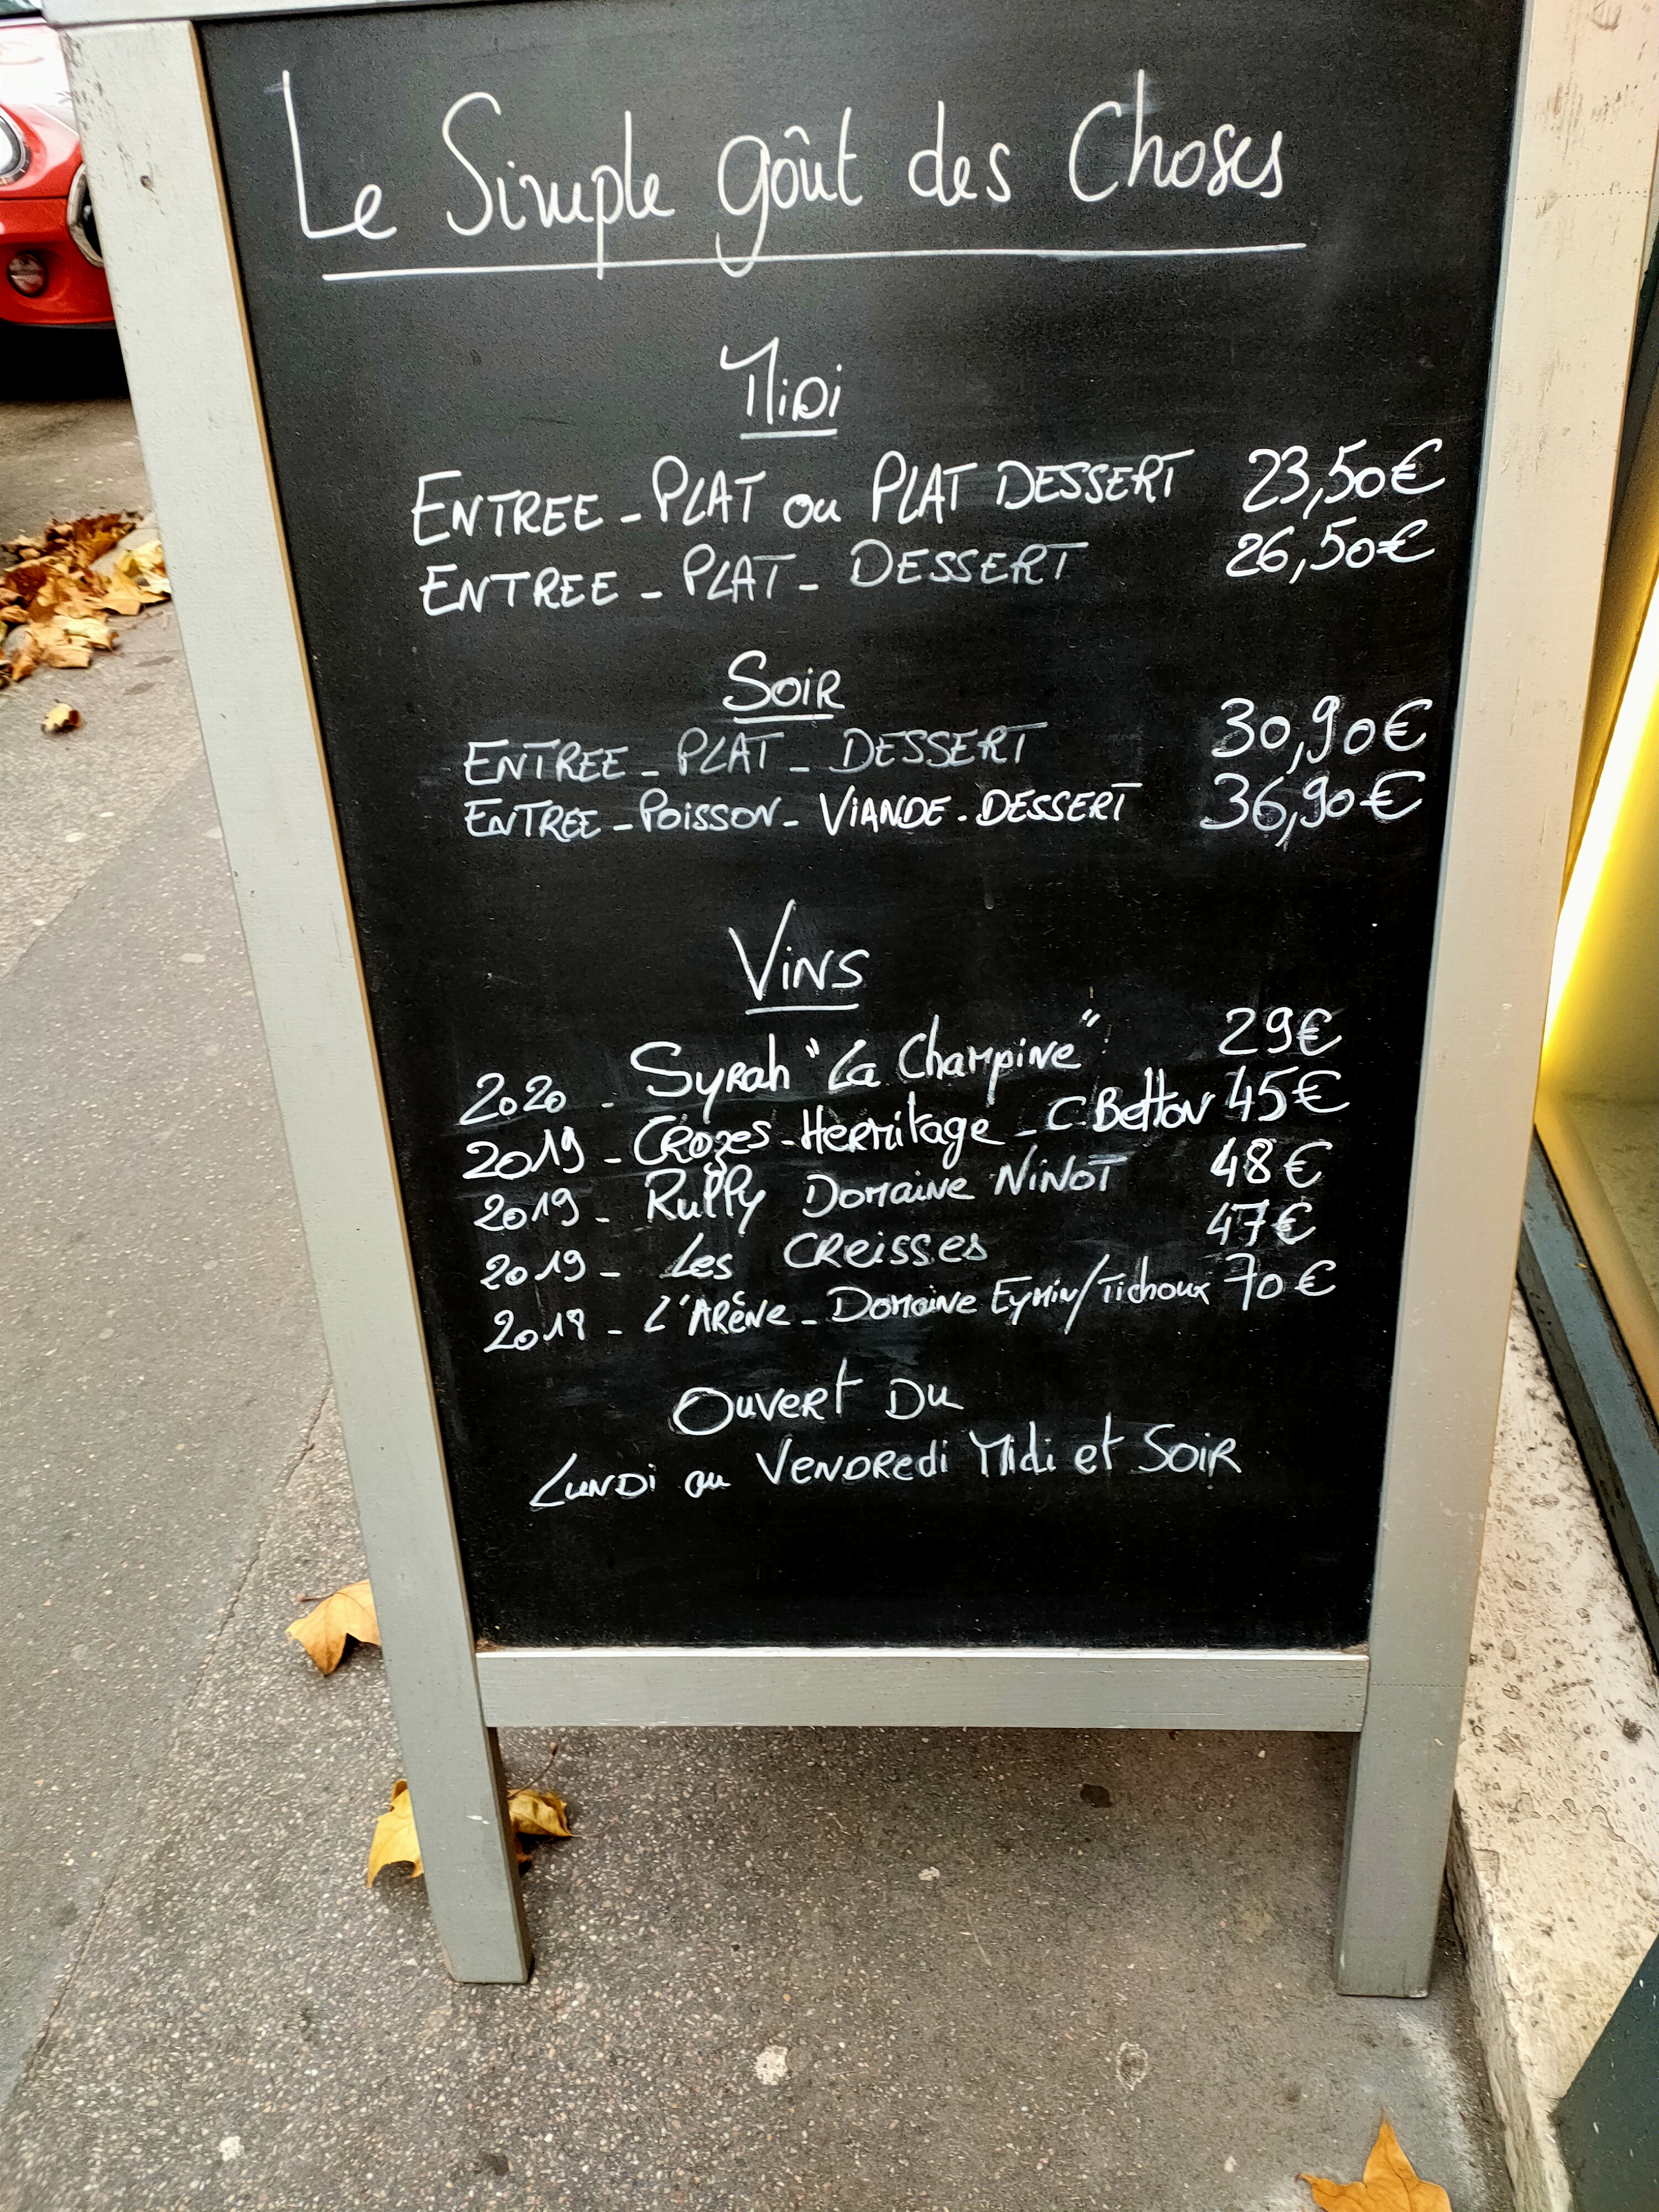 Le Simple goût des Choses
Midi
ENTREE - PLAT ou PLAT DESSERT 23,50€
ENTREE - PLAT - DESSERT 26,50€
SOIR
ENTREE - PLAT - DESSERT 30,90€
ENTREE - POISSON - VIANDE - DESSERT 36,90€
VINS
2020 - Syrah "La Champine" 29€
2019 - CROZES - HERMitage - C. Betton 45€
2019 - Rully Domaine NiNOT 48€
2019 - Les CReisses 47€
2018 - L'ARÊNe - Domaine Eymin/Tichoux 70€
OUVERT DU
LUNDi au VENDRedi Midi et SOIR